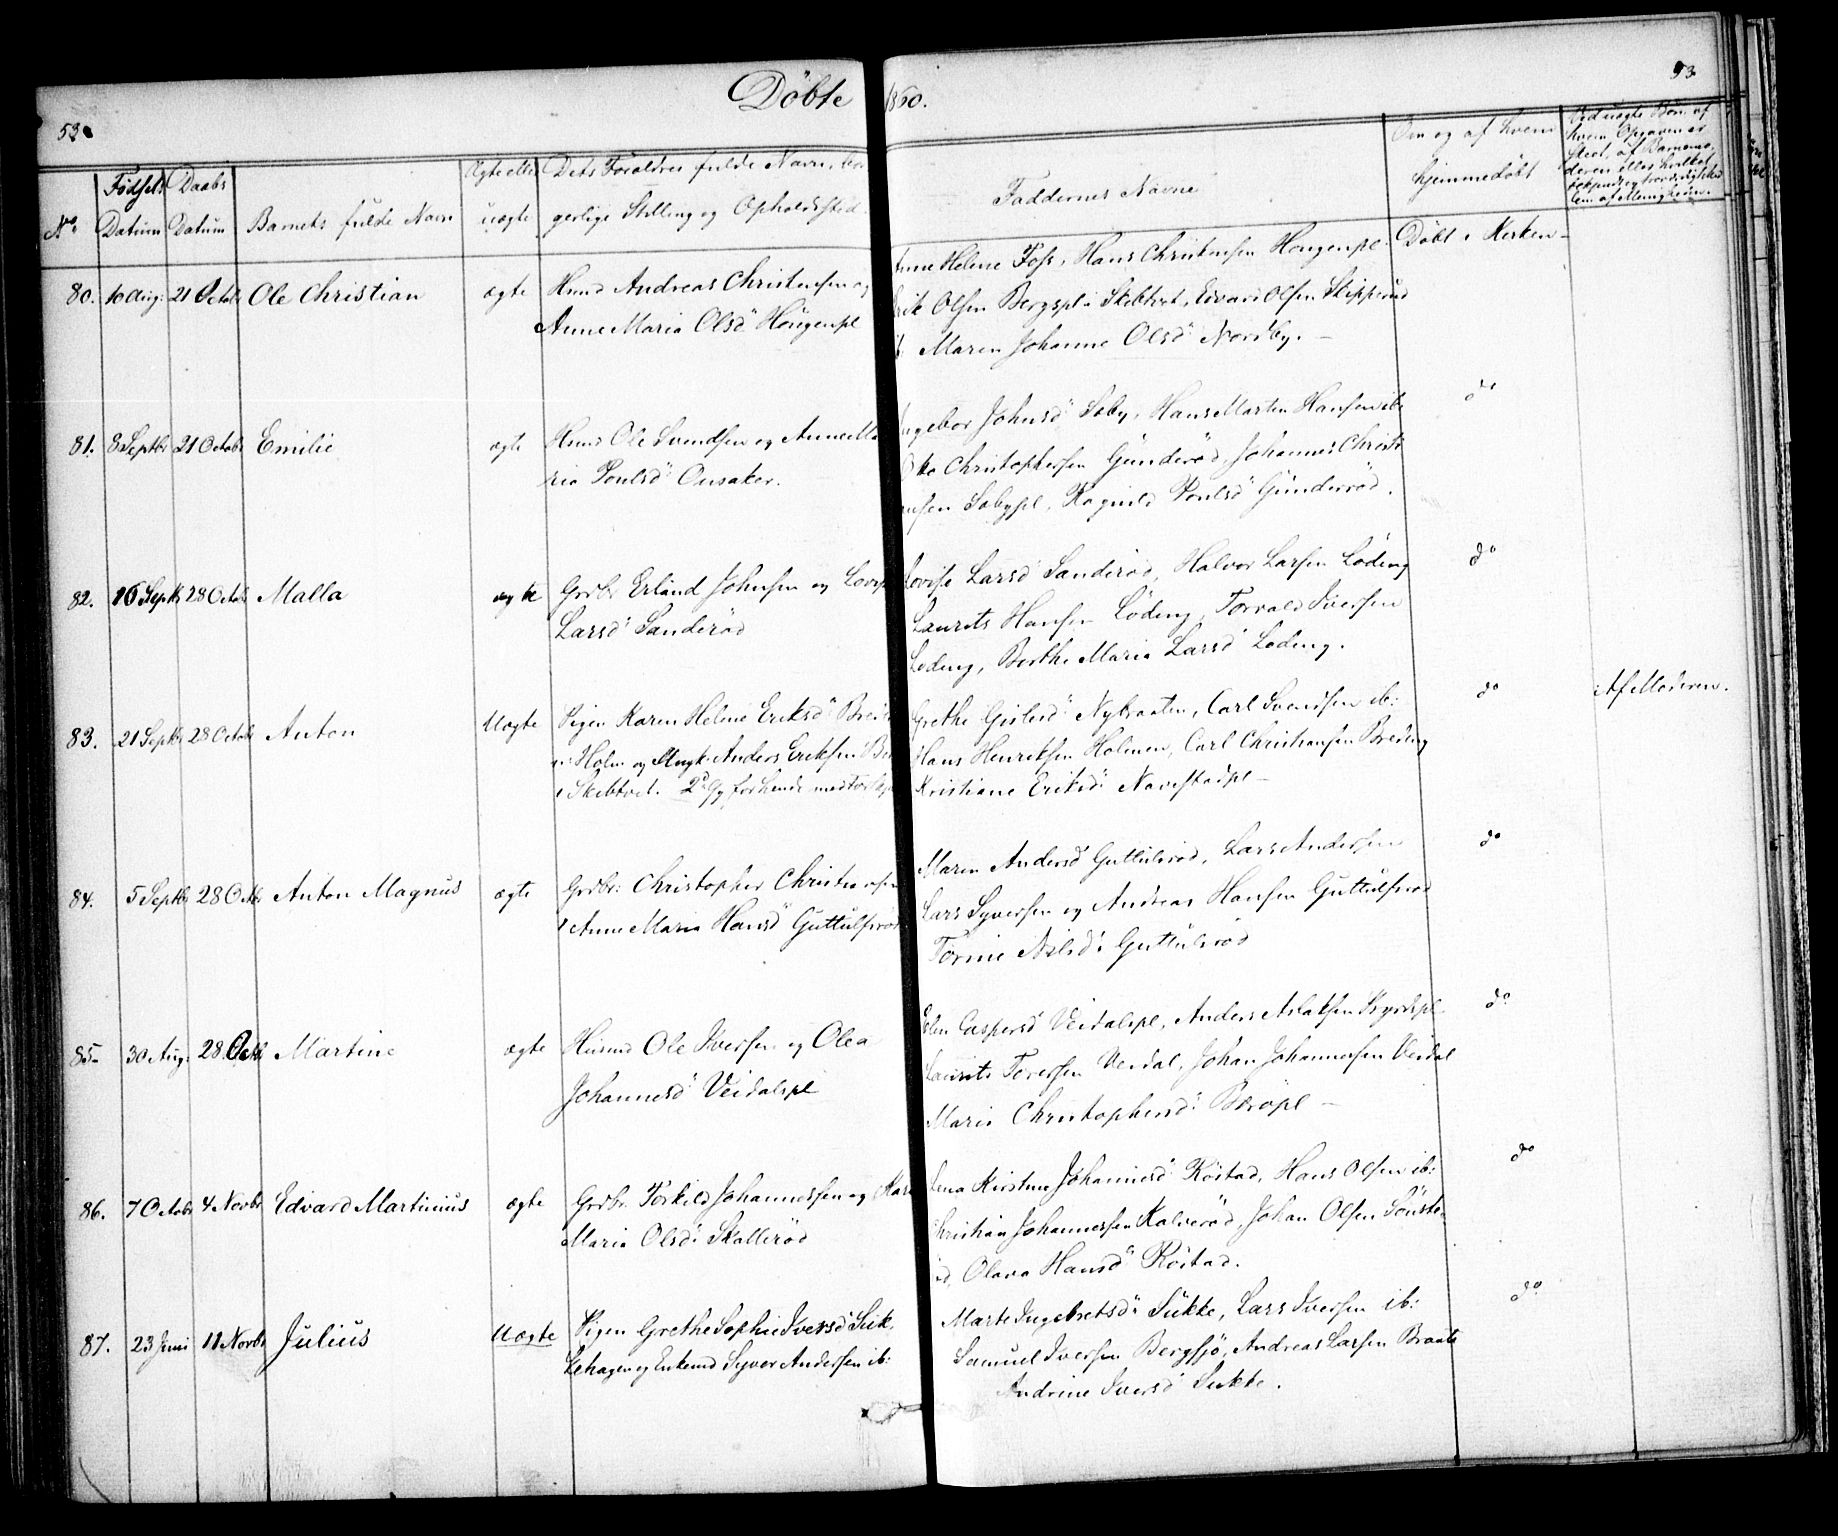 Döbte 1860.
53
53
No
Födsels Datum
Daabs Datum
Barnets fulde Navn
Ægte eller uægte
Dets Forældres fulde Navn, bor
gerlige Stilling og Opholdssted
Faddernes Navne
Om og af hvem
hjemmedöbt
Ved uægte Börn af
hvem Opgaven er
skeet, af Barnemo,
deren eller
lem af Menigheden.
80. 10 Aug: 21 Octob Ole Christian ægte Husmd Andreas Christensen og
Anne Maria Olsd: Hougenpl
Anne Helene Foss, Hans Christensen Hougenpl: Döbt i Kirken
Erik Olsen Bergspl i Skibtvet, Edvard Olsen Skipperud
Maren Johanne Olsd: Nordby.
81. 8 Septbr 21 Octobr Emilie ægte Husmd Ole Svendsen og Anne Ma
ria Poulsd: Onsaker.
Ingebor Johnsd: Soby, Hans Martin Hansen ib:
Christophersen Gunderöd, Johannes Christi
ansen Sobypl, Ragnild Poulsd: Gunderröd.
do
82. 16 Septbr 28 Octobr Malla ægte Grdbr Erland Johnsen og Lovise
Larsd: Sanderöd
Lovise Larsd: Sanderöd, Halvor Larsen Löding
Laurits Hansen Löding, Torvald Iversen
Loding, Berthe Maria Larsd: Loding.
do
83. 21 Septbr 28 Octobr Anton Uægte Pigen Karen Helene Eriksd:
Holm og Ungk: Anders Eriksen
i Skibtvet. 2d Gg for hende
Grethe Nybraaten, Carl Svendsen ib:
Hans Henriksen Holmen, Carl Christiansen Breding
Kristiane Eriksd: Navestadpl
do Af Moderen.
84. 5 Septbr 28 Octbr Anton Magnus ægte Grdbr: Christopher Christiansen
& Anne Maria Hansd: Guttulsröd
Maren Andersd: Guttulsröd, Lars Andersen
Lars Syversen og Andreas Hansen Guttulsröd
Nilsd: Guttulsröd
do
85. 30 Aug: 28 Octbr Martine ægte Husmd Ole Iversen og Olea
Johannesd: Veidalspl
Caspersd: Veidalspl, Anders Aslaksen
Laurits Torersen Veidal, Johan Johannessen Veidal
Marie Christophersd:
do
86. 7 Octobr 4 Novbr Edvard Martinius ægte Grdbr: Torkild Johannessen og Kare
Maria Olsd: Skalleröd
Lena Kirstine Johannesd: Röstad, Hans Olsen ib:
Christian Johannessen Kalveröd, Johan Olsen Sönste
öd, Olava Hansd: Röstad.
do
87. 23 Juni 11 Novbr Julius Uægte Pigen Grethe Sophie Iversd: Suk
kehagen og Enkemd Syver Andersen ib:
Marte Ingebretsd: Sukke, Lars Iversen ib:
Samuel Iversen Bergsjö, Andreas Larsen Braate
Andrine Iversd: Sukke.
do